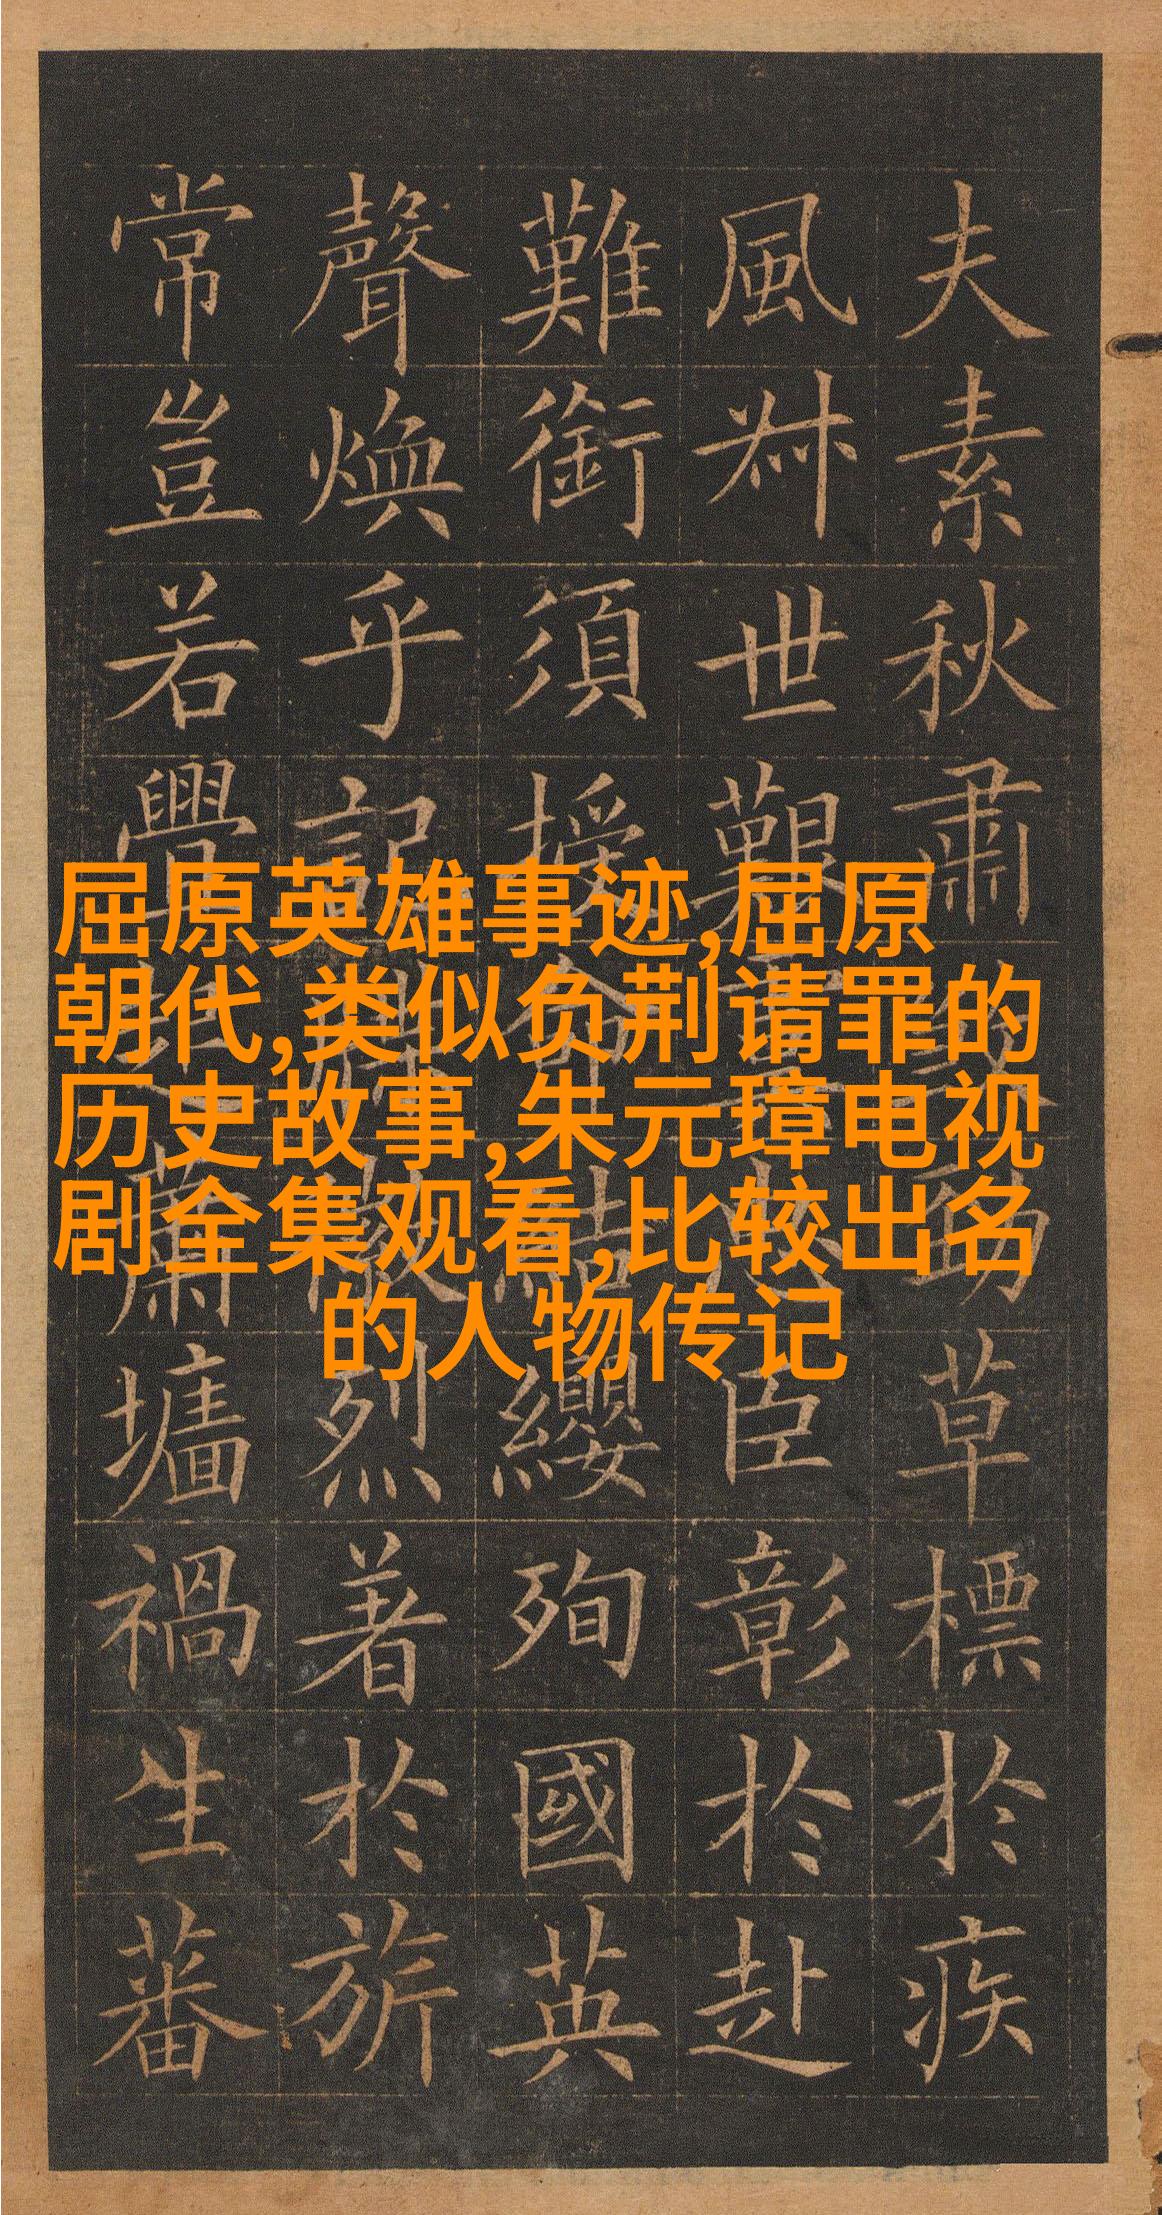 夫素秋肅勁草標於疾
風叔世艱臣彰於赴
難銜須授命結纓殉國英
聲煥乎記烈著於旂
常豈若釁蕭墻禍生蕃
屈原英雄事迹,屈原
朝代,类似负荆请罪的
历史故事,朱元璋电视
剧全集观看,比较出名
的人物传记